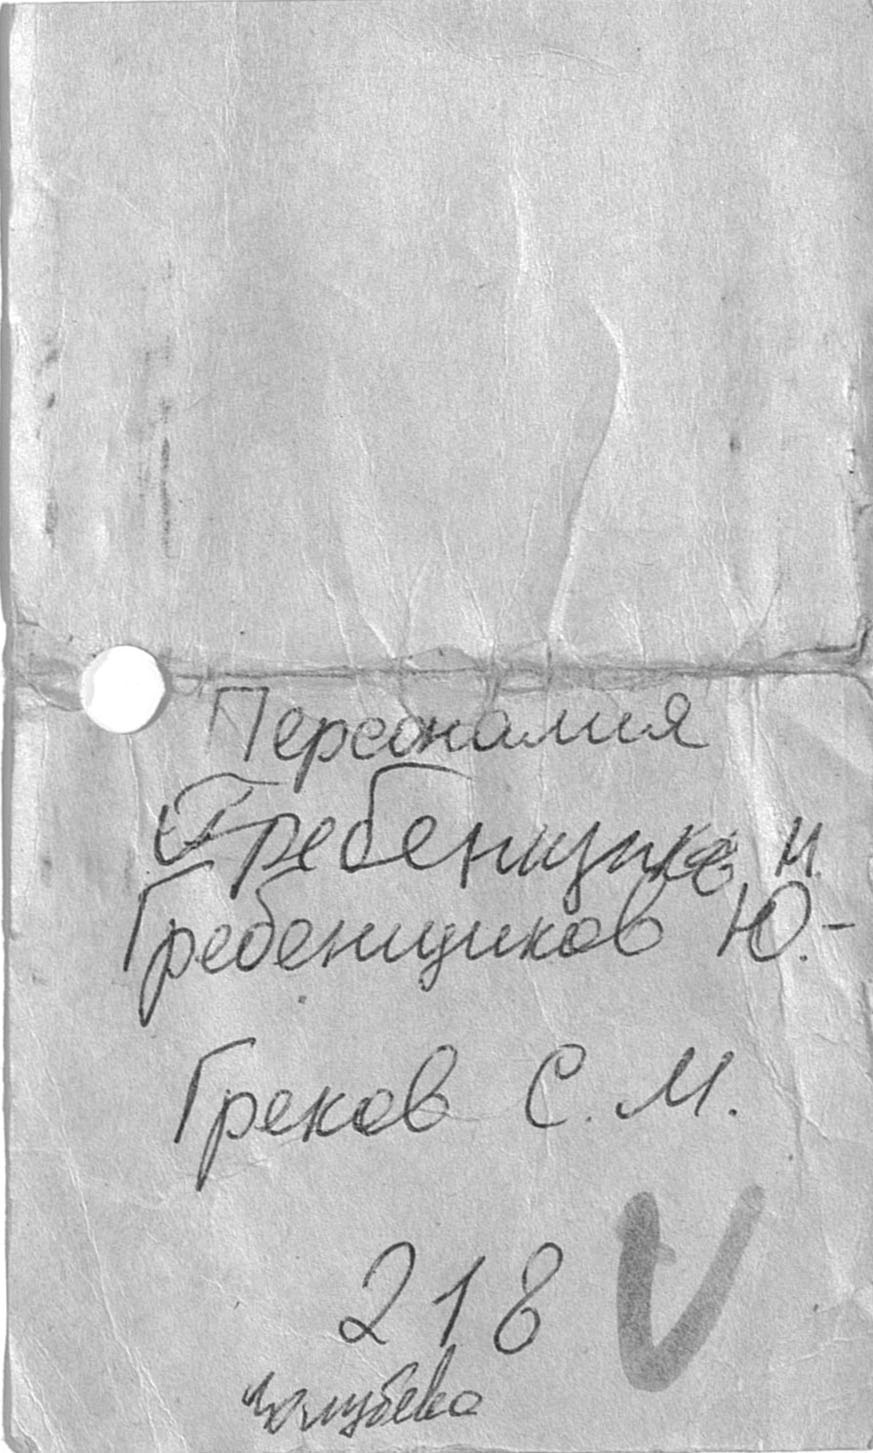 Персоналия
Гребенщиков И.
Гребенщиков Ю.-
Греков С. М.
218
Голубева